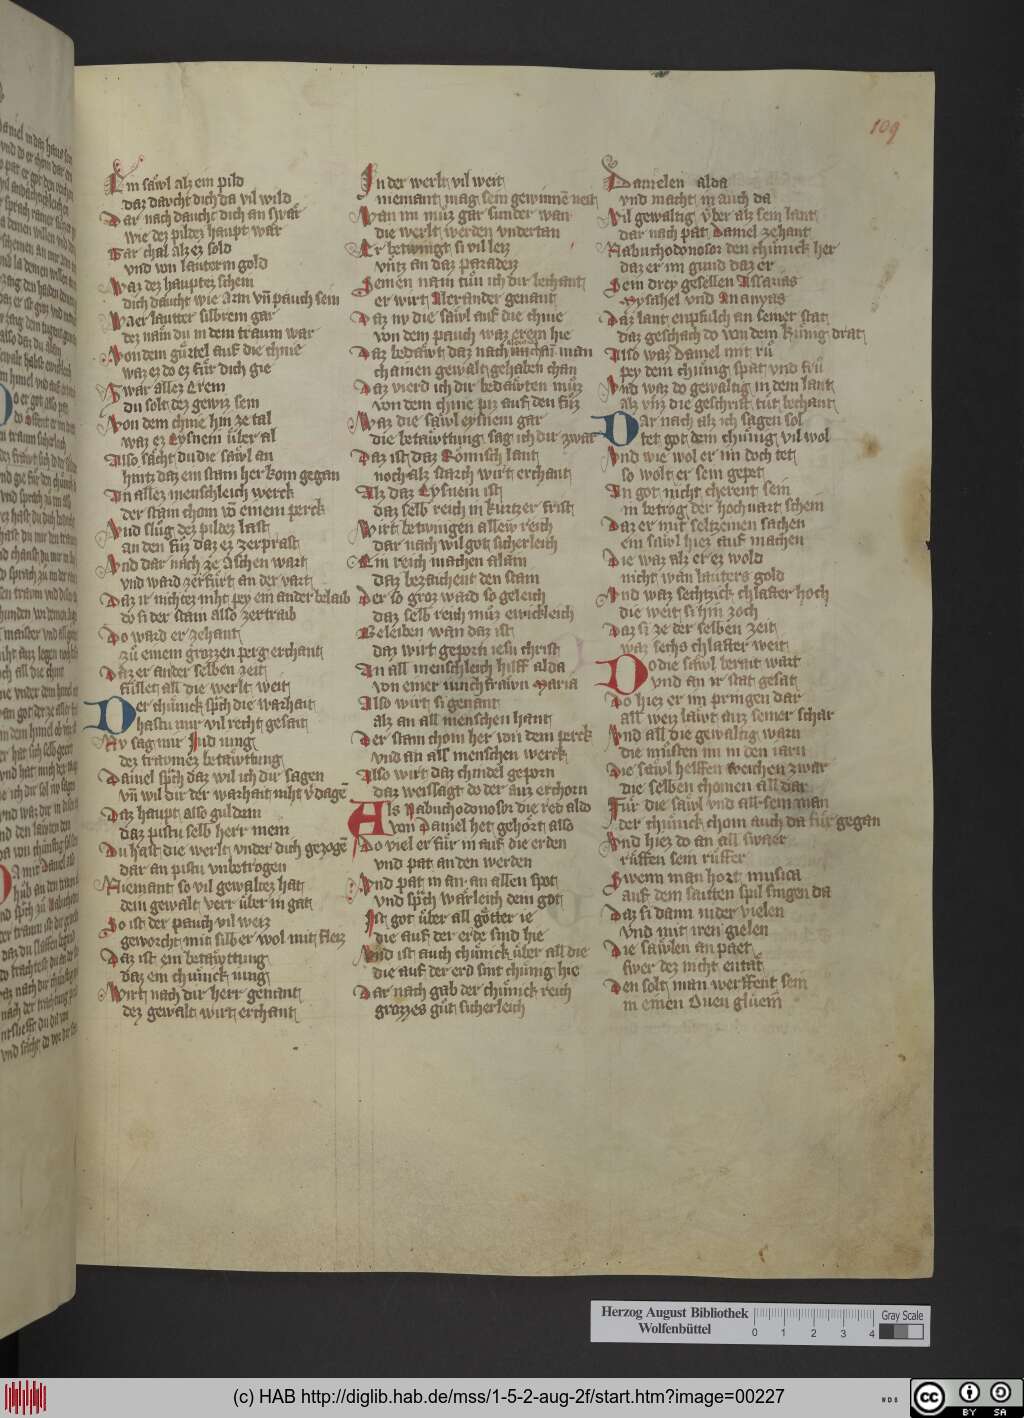 109
Ein sawl alz ein pild
daz davcht dich da vil wild
Dar nach daucht dich an swar
wie dez pildez haupt war
Gar chal alz ez sold
vnd von lauterm gold
Waz dez hauptez schein
dich daucht wie Arm vn pauch sein
Waer lautter silbrem gar
dez nam du in dem traum war
Von dem gürtel auf die chnie
waz ez do ez für dich gie
Swar allez Erein
du solt dez gewiz sein
Von dem chnie hin ze tal
waz ez Eysnein über al
Also sacht du die sawl an
hintz daz ein stain her kom gegan
An allez menschleich werck
der stain chom vo einem perck
Vnd slug dez pildez last
an den füz daz ez zerprast
Vnd dar nach ze Aschen wart
vnd ward zerfürt an der vart
Daz ir nichtez niht pey ein ander belaib
do si der stain also zertraib
Do ward er zehant
zu einem grozzen perg erchant
Daz er ander selben zeit
füllet all die werlt weit
Der chünick sprch die warhait
hastu mir vil recht gesait
Ny sag mir Jud iung
dez travmez betawttung
Daniel sprch daz wil ich dir sagen
vn wil dir der warhait niht v dage
Daz haupt also guldein
daz pistu selb herr mein
Du hast die werlt vnder dich gezoge
dar an pistu vnbetrogen
Niemant so vil gewaltez hat
dein gewalt verr über in gat
So ist der pauch vil weiz
geworcht mit silber wol mit fleiz
Daz ist ein betawttung
daz ein chünick iung
Wirt nach dir herr genant
dez gewalt wirt erchant
In der werlt vil weit
niemant mag sein gewinne neit
Wan im müz gar sunder wan
die werlt werden vndertan
Er betwingt si vil leiz
vntz an daz paradez
Seinen nam tun ich dir bechant
er wirt Alexander genant
Daz ny die sawl auf die chnie
von dem pauch waz erein hie
Daz bedawt daz nach nie chain man
chainen gewalt gehaben chan
Daz vierd ich dir bedawten müz
von dem chnie piz auf den füz
Waz die sawl eysnein gar
die betawttung sag ich dir zwar
Daz ist daz Römisch lant
noch alz starch wirt erchant
Alz daz Eysnein ist
daz selb reich in kurtzer frist
Wirt betwingen allew reich
dar nach wil got sicherleich
Ein reich machen alain
daz bezaichent den stain
Der so groz ward so geleich
daz selb reich müz ewickleich
Beleiben wan daz ist
daz wirt geporn iesu christ
An all menschleich hilff alda
von einer iunchfrawn Maria
Also wirt si genant
alz an all menschen hant
Der stain chom her von dem perck
vnd an all menschen werck
Also wirt daz chindel geporn
daz weissagt do der auz erchorn
Als Nabuchodonosor die red aldo
von Daniel het gehort also
Do viel er für in auf die erden
vnd pat an den werden
Vnd pat in an an allen spot
vnd sprch wärleich dem got
Ist got über all götter ie
die auf der erde sind hie
Vnd ist auch chünick über all die
die auf der erd sint chünig hie
Dar nach gab der chünick reich
grozzes gut sicherleich
Danielen alda
vnd macht in auch da
Vil gewaltig vber alz sein lant
dar nach pat Daniel zehant
Nabuchodonosor den chünick her
daz er im gund daz er
Sein drey gesellen Assarias
Mysahel vnd Ananyas
Daz lant enpfulch an seiner stat
daz geschach do von dem künig drat
Also waz Daniel mit ru
pey dem chünig spat vnd fru
Vnd waz do gewaltig in dem lant
alz vnz die geschrift tut bechant
Dar nach alz ich sagen sol
tet got dem chünig vil wol
Vnd wie wol er im doch tet
so wolt er sein gepet
An got nicht cherent sein
in betrog der hochuart schein
Daz er mit seltzeinen sachen
ein sawl hiez auf machen
Die waz alz er ez wold
nicht wan lauters gold
Vnd waz sechtzick chlafter hoch
die weit si hin zoch
Daz si ze der selben zeit
waz sechs chlafter weit
Do die sawl berait wart
vnd an ir stat gesat
Do hiez er im pringen dar
all weiz lawt auz seiner schar
Vnd all die gewaltig warn
die müsten im in den iarn
Die sawl helffen weichen zwar
die selben chomen all dar
Für die sawl vnd all sein man
der chünick chom auch da für gegan
Vnd hiez do an all swaer
rüffen sein rüffer
Swenn man hort musica
auf dem saitten spil singen da
Daz si dann nider vielen
vnd mit iren gielen
Die sawlen an paet
swer dez nicht entät
Den solt man werffent sein
in einen Ouen glüein
Herzog August Bibliothek
Wolfenbüttel
Gray Scale
0 1 2 3 4
(c) HAB http://diglib.hab.de/mss/1-5-2-aug-2f/start.htm?image=00227
cc BY SA